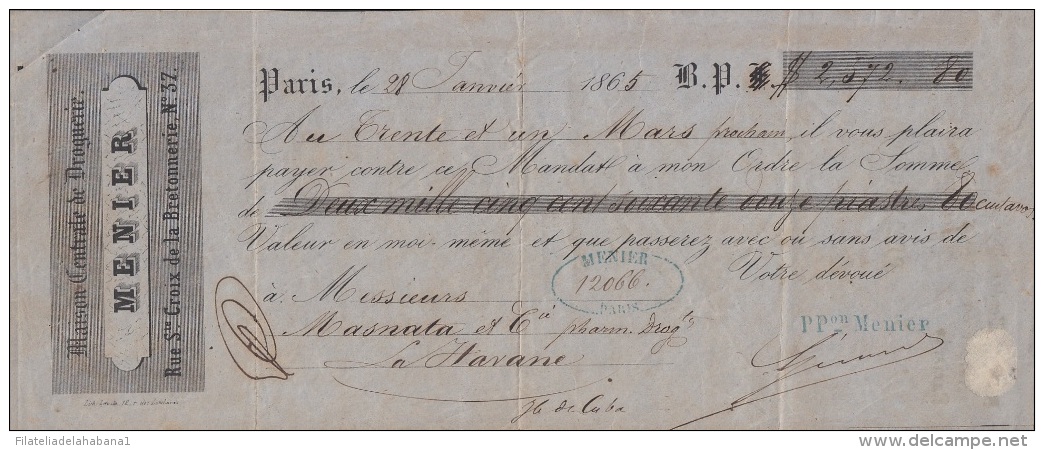 Maison Centrale de Droguerie.
MENIER
Rue Ste Croix de la Bretonnerie, N° 37.
Paris, le 28 Janvier 1865 B. P. $ 2,572. 80
Au Trente et un Mars prochain il vous plaira
payer contre ce Mandat à mon Ordre la Somme
de Deux mille cinq cent soixante douze piastres 80 centavos
Valeur en moi-même et que passerez avec ou sans avis de
Votre dévoué
à Messieurs
MENIER
12066.
PARIS
Masnata et Cie pharm. Drogtes
La Havane
PPon Menier
Ile de Cuba
Filateliadelahabana1
delcampe.net